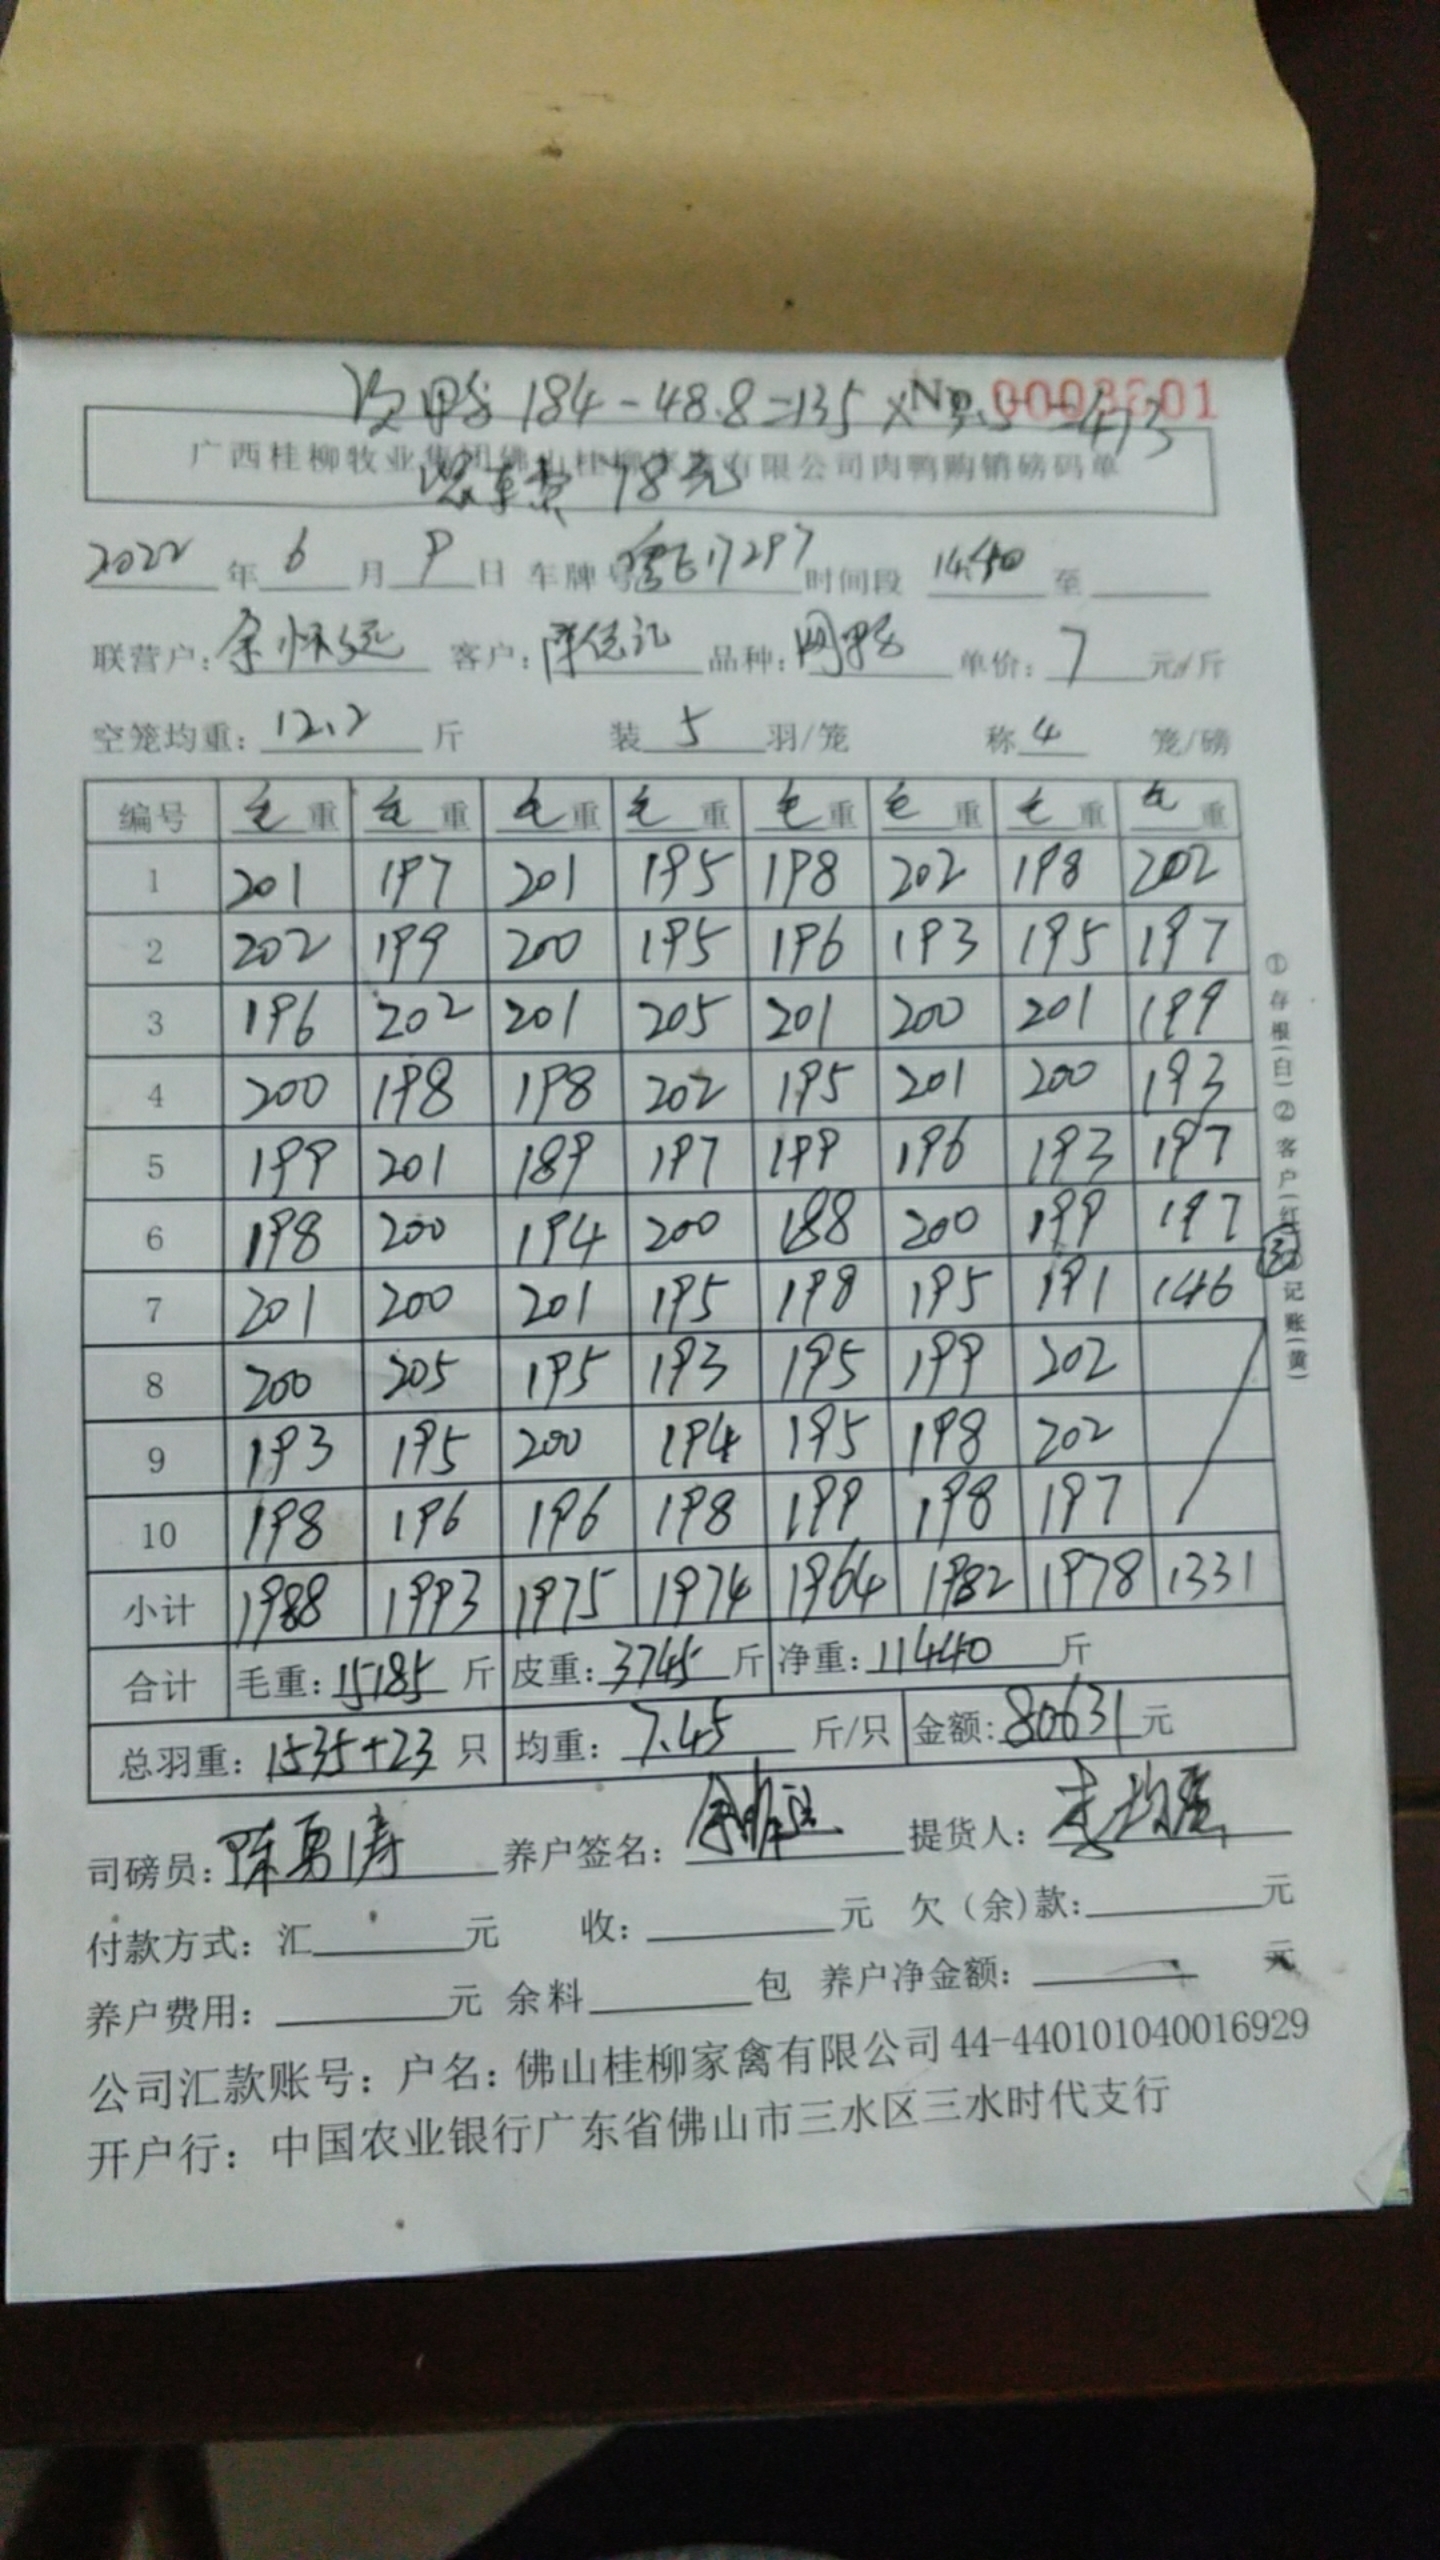 次鸭 184-48.8=135×3.5=473 No 0008801
广西桂柳牧业集团佛山桂柳家禽有限公司肉鸭购销磅码单
车费 78元
2022年6月9日 车牌号 17297 时间段 14:40 至
联营户:余怀远 客户:陈伟记 品种: 单价:7元/斤
空笼均重:12.2斤 装5羽/笼 称4笼/磅
编号 毛重 毛重 毛重 毛重 毛重 毛重 毛重 毛重
1 201 197 201 195 198 202 198 202
2 202 199 200 195 196 193 195 197
3 196 202 201 205 201 200 201 199
4 200 198 198 202 195 201 200 193
5 199 201 189 197 199 196 193 197
6 198 200 194 200 188 200 199 197
7 201 200 201 195 198 195 191 146
8 200 205 195 193 195 199 202
9 193 195 200 194 195 198 202
10 198 196 196 198 199 198 197
小计 1988 1993 1975 1974 1964 1982 1978 1331
合计 毛重:15185斤 皮重:3745斤 净重:11440斤
总羽重:1535+23只 均重:7.45斤/只 金额:80631元
司磅员:陈勇涛 养户签名: 提货人:
付款方式:汇 元 收: 元 欠(余)款: 元
养户费用: 元 余料 包 养户净金额: 元
公司汇款账号:户名:佛山桂柳家禽有限公司44-440101040016929
开户行:中国农业银行广东省佛山市三水区三水时代支行
①存根(白)②客户(红)③记账(黄)